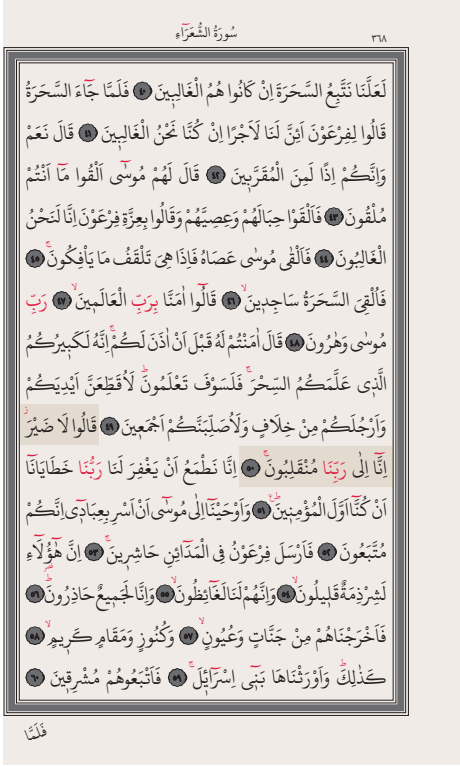 سُورَةُ الشُّعَرَٓاءِ ٣٦٨
لَعَلَّنَا نَتَّبِعُ السَّحَرَةَ اِنْ كَانُوا هُمُ الْغَالِب۪ينَ ﴿٤٠﴾ فَلَمَّا جَٓاءَ السَّحَرَةُ
قَالُوا لِفِرْعَوْنَ اَئِنَّ لَنَا لَاَجْرًا اِنْ كُنَّا نَحْنُ الْغَالِب۪ينَ ﴿٤١﴾ قَالَ نَعَمْ
وَاِنَّكُمْ اِذًا لَمِنَ الْمُقَرَّب۪ينَ ﴿٤٢﴾ قَالَ لَهُمْ مُوسٰٓى اَلْقُوا مَٓا اَنْتُمْ
مُلْقُونَ ﴿٤٣﴾ فَاَلْقَوْا حِبَالَهُمْ وَعِصِيَّهُمْ وَقَالُوا بِعِزَّةِ فِرْعَوْنَ اِنَّا لَنَحْنُ
الْغَالِبُونَ ﴿٤٤﴾ فَاَلْقٰى مُوسٰى عَصَاهُ فَاِذَا هِيَ تَلْقَفُ مَا يَأْفِكُونَۚ ﴿٤٥﴾
فَاُلْقِيَ السَّحَرَةُ سَاجِد۪ينَۙ ﴿٤٦﴾ قَالُٓوا اٰمَنَّا بِرَبِّ الْعَالَم۪ينَۙ ﴿٤٧﴾ رَبِّ
مُوسٰى وَهٰرُونَ ﴿٤٨﴾ قَالَ اٰمَنْتُمْ لَهُ قَبْلَ اَنْ اٰذَنَ لَكُمْۚ اِنَّهُ لَكَب۪يرُكُمُ
الَّذ۪ي عَلَّمَكُمُ السِّحْرَۚ فَلَسَوْفَ تَعْلَمُونَۜ لَاُقَطِّعَنَّ اَيْدِيَكُمْ
وَاَرْجُلَكُمْ مِنْ خِلَافٍ وَلَاُصَلِّبَنَّكُمْ اَجْمَع۪ينَ ﴿٤٩﴾ قَالُوا لَا ضَيْرَۘ
اِنَّٓا اِلٰى رَبِّنَا مُنْقَلِبُونَۚ ﴿٥٠﴾ اِنَّا نَطْمَعُ اَنْ يَغْفِرَ لَنَا رَبُّنَا خَطَايَانَٓا
اَنْ كُنَّٓا اَوَّلَ الْمُؤْمِن۪ينَۜ ﴿٥١﴾ وَاَوْحَيْنَٓا اِلٰى مُوسٰٓى اَنْ اَسْرِ بِعِبَاد۪ٓي اِنَّكُمْ
مُتَّبَعُونَ ﴿٥٢﴾ فَاَرْسَلَ فِرْعَوْنُ فِي الْمَدَٓائِنِ حَاشِر۪ينَۚ ﴿٥٣﴾ اِنَّ هٰٓؤُ۬لَٓاءِ
لَشِرْذِمَةٌ قَل۪يلُونَۙ ﴿٥٤﴾ وَاِنَّهُمْ لَنَا لَغَٓائِظُونَۙ ﴿٥٥﴾ وَاِنَّا لَجَم۪يعٌ حَاذِرُونَۜ ﴿٥٦﴾
فَاَخْرَجْنَاهُمْ مِنْ جَنَّاتٍ وَعُيُونٍۙ ﴿٥٧﴾ وَكُنُوزٍ وَمَقَامٍ كَر۪يمٍۙ ﴿٥٨﴾
كَذٰلِكَۜ وَاَوْرَثْنَاهَا بَن۪ٓي اِسْرَٓائ۪لَۜ ﴿٥٩﴾ فَاَتْبَعُوهُمْ مُشْرِق۪ينَ ﴿٦٠﴾
فَلَمَّا